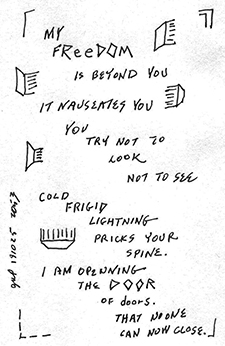 MY
FREEDOM
IS BEYOND YOU
IT NAUSEATES YOU
YOU
TRY NOT TO
LOOK
NOT TO SEE
COLD
FRIGID
LIGHTNING
PRICKS YOUR
SPINE.
I AM OPENNING
THE DOOR
OF DOORS.
THAT NO ONE
CAN NOW CLOSE.